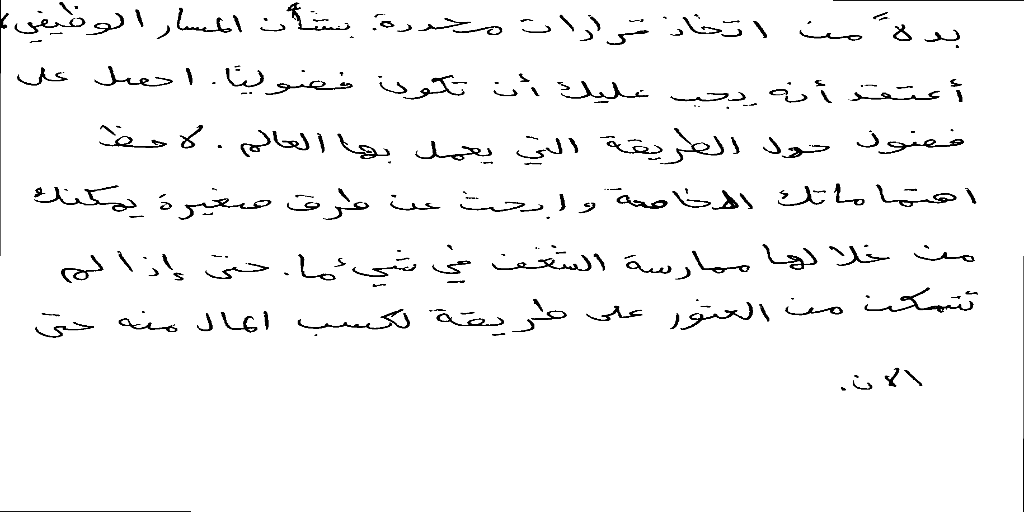 بدلاً من اتخاذ قرارات محددة. بشأن المسار الوظيفي،
أعتقد أنه يجب عليك أن تكون فضوليًا. احصل على
فضول حول الطريقة التي يعمل بها العالم. لاحظ
اهتماماتك الخاصة وابحث عن طرق صغيرة يمكنك
من خلالها ممارسة الشغف في شيء ما. حتى إذا لم
تتمكن من العثور على طريقة لكسب المال منه حتى
الان.